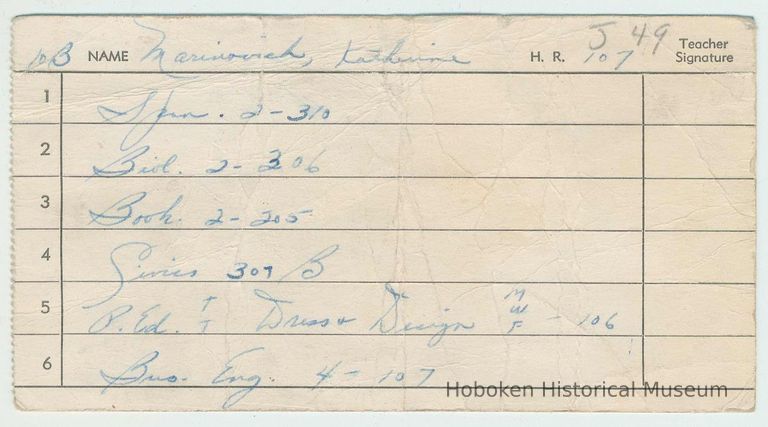 10B NAME Marinovich, Katherine H. R. 107 J 49 Teacher Signature
1 Span. 2-310
2 Biol. 2-306
3 Book. 2-205
4 Civics 307 B
5 P. Ed. T T Dress & Design M W F - 106
6 Bus. Eng. 4-107
Hoboken Historical Museum